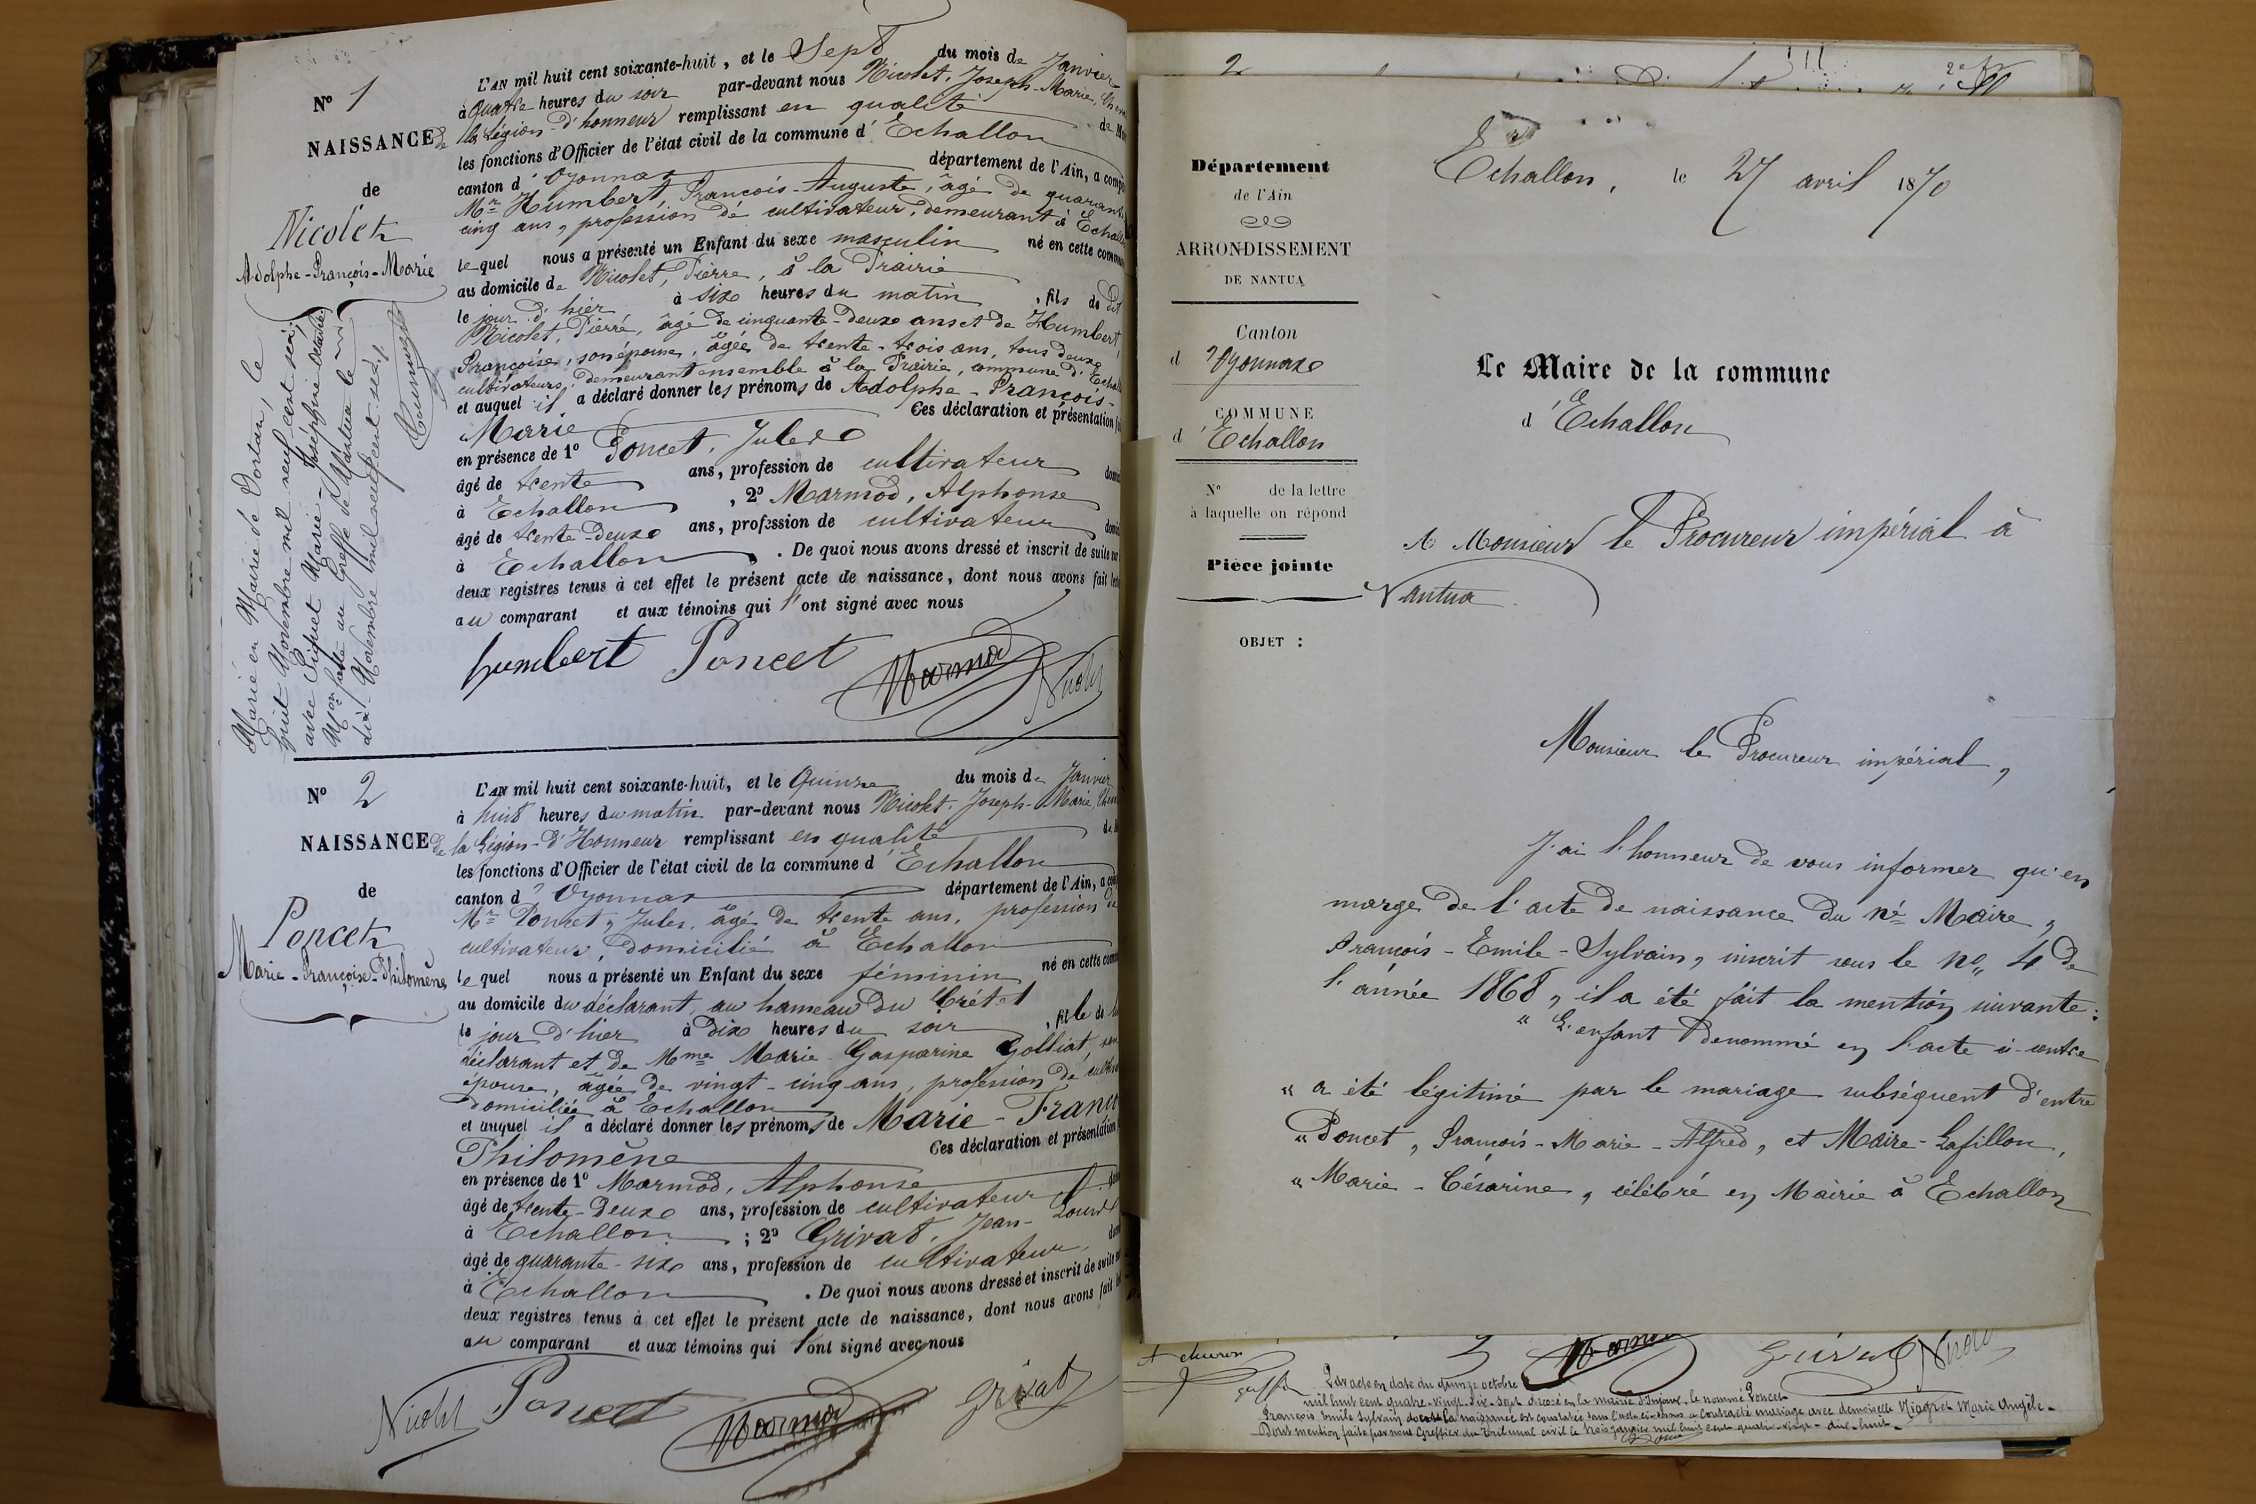 N° 1
NAISSANCE
de
Nicolet
Adolphe-François-Marie
Marié en Mairie de Dortan, le
huit Novembre mil neuf cent seize
avec Piquet Marie-Joséphine
Mon faite au Greffe de Nantua le
dix Novembre mil neuf cent seize
L'AN mil huit cent soixante-huit, et le Sept du mois de Janvier
à quatre heures du soir par-devant nous Nicolet, Joseph-Marie,
de la Légion-d'honneur remplissant en qualité de
les fonctions d'Officier de l'état civil de la commune d'Echallon
canton d'Oyonnax département de l'Ain, a
Mr Humbert, François-Auguste, âgé de quarante
cinq ans, profession de cultivateur, demeurant à
lequel nous a présenté un Enfant du sexe masculin né en cette
au domicile de Nicolet, Pierre, à la Prairie
le jour d'hier à six heures du matin, fils de
Nicolet, Pierre, âgé de cinquante-deux ans et de Humbert,
Françoise, son épouse, âgée de trente-trois ans, tous deux
cultivateurs, demeurant ensemble à la Prairie, commune d'
et auquel il a déclaré donner les prénoms de Adolphe-François-
Marie Ces déclaration et présentation
en présence de 1° Poncet, Jules
âgé de trente ans, profession de cultivateur
à Echallon, 2° Marmod, Alphonse
âgé de trente-deux ans, profession de cultivateur
à Echallon. De quoi nous avons dressé et inscrit de suite
deux registres tenus à cet effet le présent acte de naissance, dont nous avons fait
au comparant et aux témoins qui l'ont signé avec nous
humbert Poncet Marmod Nicolet
N° 2
NAISSANCE
de
Poncet
Marie-Françoise-Philomène
L'AN mil huit cent soixante-huit, et le Quinze du mois de Janvier
à huit heures du matin par-devant nous Nicolet, Joseph-Marie,
de la Légion-d'Honneur remplissant en qualité
les fonctions d'Officier de l'état civil de la commune d'Echallon
canton d'Oyonnax département de l'Ain, a
Mr Poncet, Jules, âgé de trente ans, profession de
cultivateur, domicilié à Echallon
lequel nous a présenté un Enfant du sexe féminin né en cette
au domicile du déclarant, au hameau du Crétet
le jour d'hier à dix heures du soir, fille de
déclarant et de Mme Marie-Gasparine Golliat, son
épouse, âgée de vingt-cinq ans, profession de
domiciliée à Echallon
et auquel il a déclaré donner les prénoms de Marie-
Philomène Ces déclaration et présentation
en présence de 1° Marmod, Alphonse
âgé de trente-deux ans, profession de cultivateur
à Echallon; 2° Grivat, Jean-
âgé de quarante-six ans, profession de cultivateur,
à Echallon. De quoi nous avons dressé et inscrit de suite
deux registres tenus à cet effet le présent acte de naissance, dont nous avons fait
au comparant et aux témoins qui l'ont signé avec nous
Nicolet Poncet Marmod Grivat
Département
de l'Ain
ARRONDISSEMENT
DE NANTUA
Canton
d'Oyonnax
COMMUNE
d'Echallon
N° de la lettre
à laquelle on répond
Pièce jointe
OBJET :
Echallon, le 27 avril 1870
Le Maire de la commune
d'Echallon
A Monsieur le Procureur impérial à
Nantua.
Monsieur le Procureur impérial,
J'ai l'honneur de vous informer qu'en
marge de l'acte de naissance du né Maire,
François-Emile-Sylvain, inscrit sous le no 4 de
l'année 1868, il a été fait la mention suivante:
" L'enfant dénommé en l'acte ci-contre
" a été légitimé par le mariage subséquent d'entre
" Poncet, François-Marie-Alfred, et Maire-Lafillon,
" Marie-Césarine, célébré en Mairie à Echallon
Marmod
Par acte en date du quinze octobre
mil huit cent quatre-vingt-dix-sept dressé en la mairie d' le nommé Poncet
François Emile Sylvain dont la naissance est constatée dans l'acte ci-dessus a contracté mariage avec demoiselle Marie Angèle
Dont mention faite par nous Greffier du Tribunal civil le trois janvier mil huit cent quatre-vingt-dix-huit